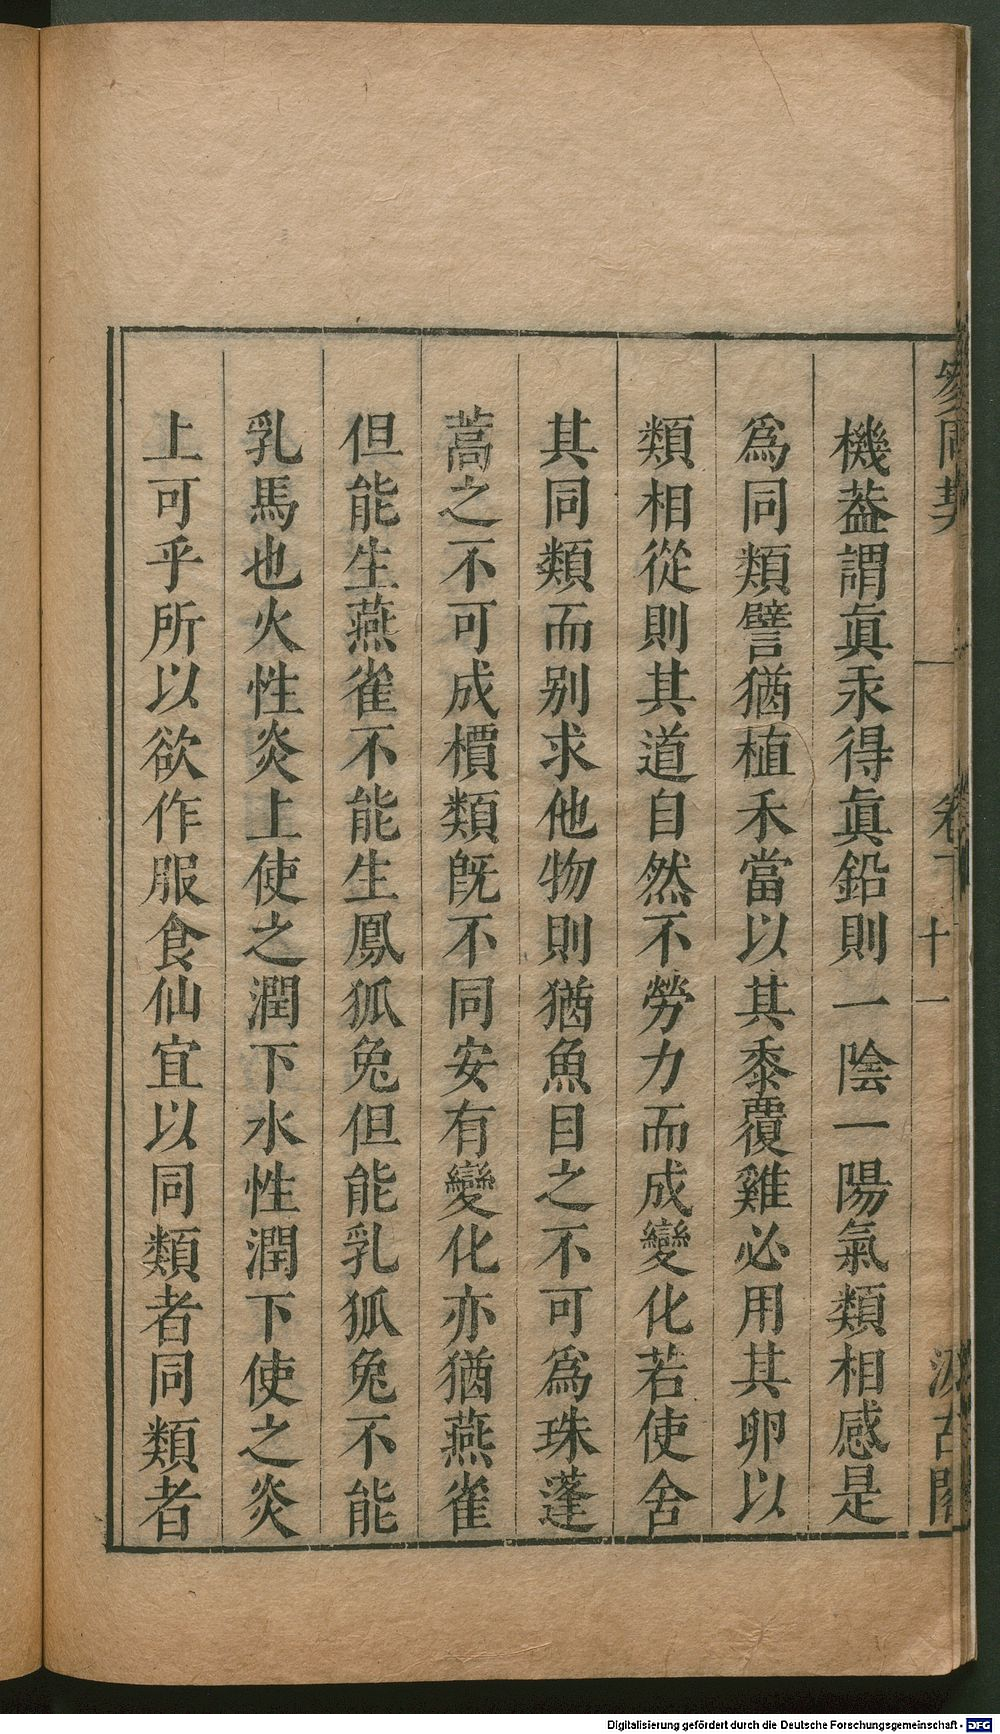 參同契 卷下 十一 汲古閣
機葢謂眞汞得眞鉛則一隂一陽氣類相感是
爲同類譬猶植禾當以其黍覆雞必用其卵以
類相從則其道自然不勞力而成變化若使舍
其同類而别求他物則猶魚目之不可爲珠蓬
蒿之不可成檟類旣不同安有變化亦猶燕雀
但能生燕雀不能生鳳狐兔但能乳狐兔不能
乳馬也火性炎上使之潤下水性潤下使之炎
上可乎所以欲作服食仙宜以同類者同類者
Digitalisierung gefördert durch die Deutsche Forschungsgemeinschaft - DFG